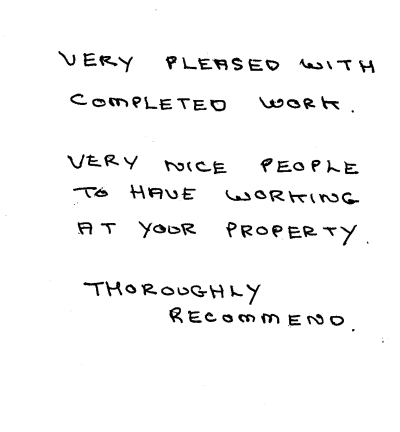 VERY PLEASED WITH
COMPLETED WORK.
VERY NICE PEOPLE
TO HAVE WORKING
AT YOUR PROPERTY.
THOROUGHLY
RECOMMEND.